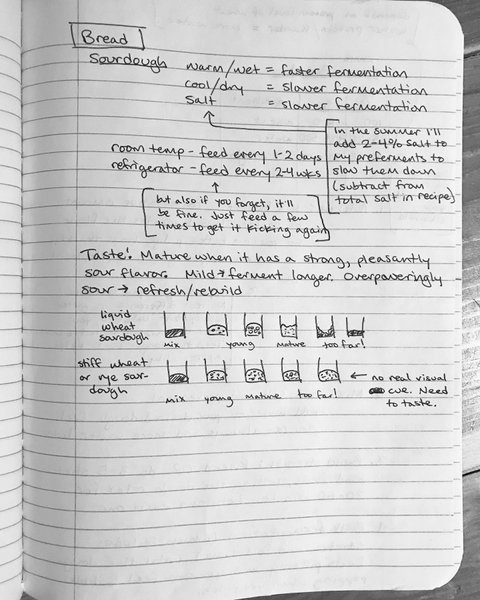 Bread
Sourdough warm/wet = faster fermentation
cool/dry = slower fermentation
Salt = slower fermentation
In the summer I'll
add 2-4% salt to
my preferments to
slow them down
(subtract from
total salt in recipe)
room temp - feed every 1-2 days
refrigerator - feed every 2-4 wks
but also if you forget, it'll
be fine. Just feed a few
times to get it kicking again
Taste! Mature when it has a strong, pleasantly
sour flavor. Mild → ferment longer. Overpoweringly
sour → refresh/rebuild
liquid
wheat
sourdough
mix young mature too far!
stiff wheat
or rye sour-
dough
mix young mature too far!
← no real visual
cue. Need
to taste.